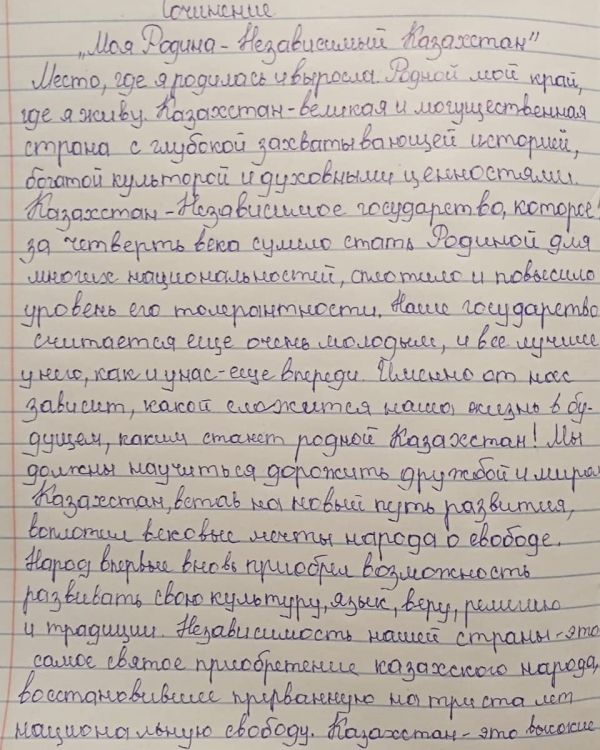 Сочинение
„Моя Родина - Независимый Казахстан"
Место, где я родилась и выросла. Родной мой край,
где я живу. Казахстан - великая и могущественная
страна с глубокой захватывающей историей,
богатой культорой и духовными ценностями.
Казахстан - Независимое государство, которое
за четверть века сумело стать Родиной для
многих национальностей, сплотило и повысило
уровень его толерантности. Наше государство
считается еще очень молодым, и все лучшее
у него, как и у нас - еще впереди. Именно от нас
зависит, какой сложится наша жизнь в бу-
дущем, каким станет родной Казахстан! Мы
должны научиться дорожить дружбой и миром
Казахстан, встав на новый путь развития,
воплотил вековые мечты народа о свободе.
Народ впервые вновь приобрел возможность
развивать свою культуру, язык, веру, религию
и традиции. Независимость нашей страны - это
самое святое приобретение казахского народа,
восстановившее прерванную на триста лет
национальную свободу. Казахстан - это высокие